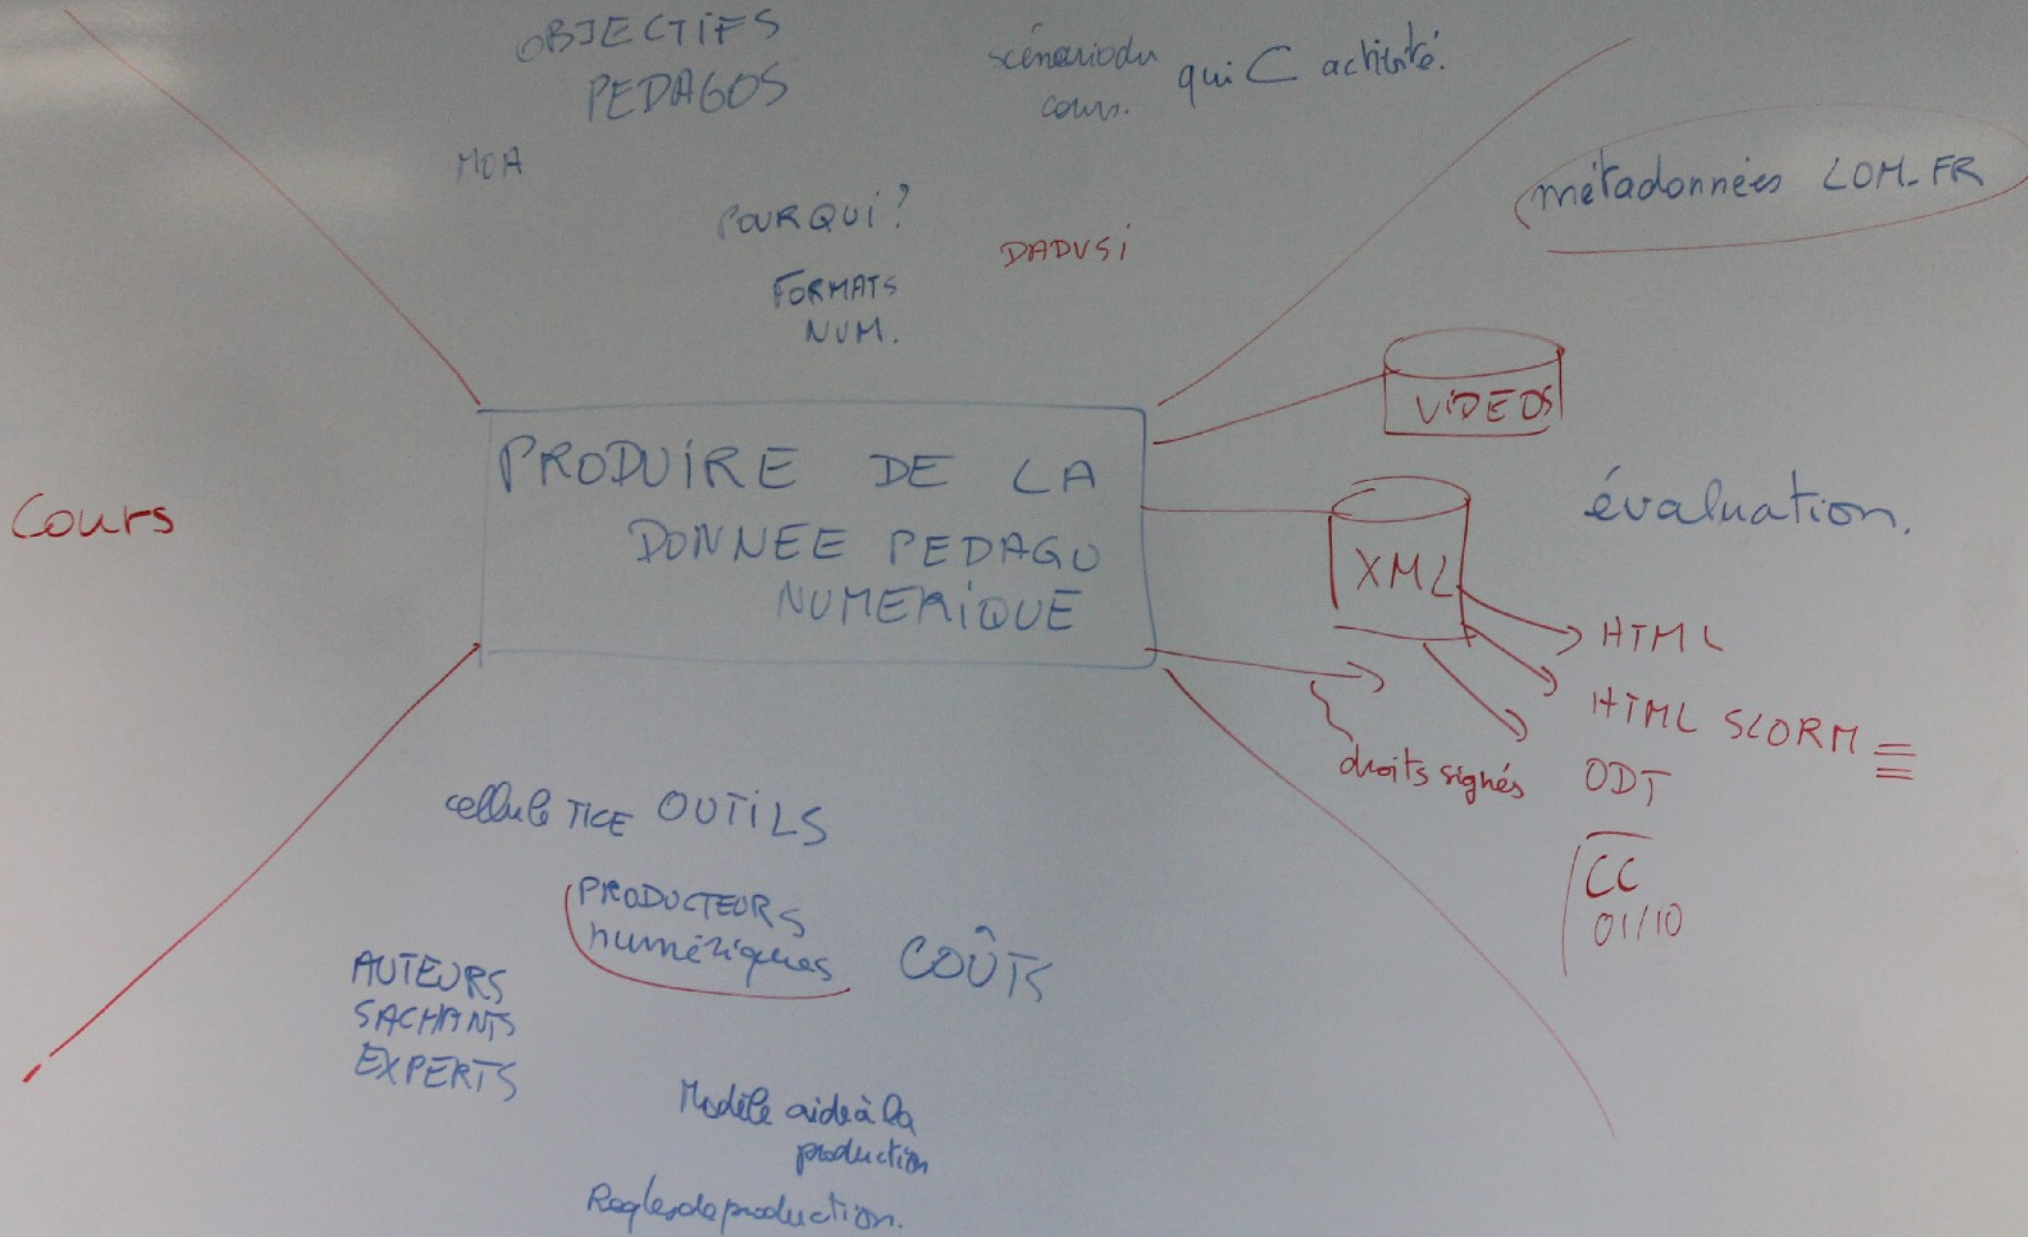 OBJECTIFS
PEDAGOS
scénario du
cours.
qui C activité.
MOA
métadonnées LOM-FR
POURQUI?
DADVSI
FORMATS
NUM.
VIDEOS
PRODUIRE DE LA
DONNEE PEDAGO
NUMERIQUE
Cours
évaluation.
XML
HTML
HTML SCORM
droits signés
ODT
CC
01/10
cellule TICE OUTILS
PRODUCTEURS
numériques
COÛTS
AUTEURS
SACHANTS
EXPERTS
Modèle aide à la
production
Regles de production.